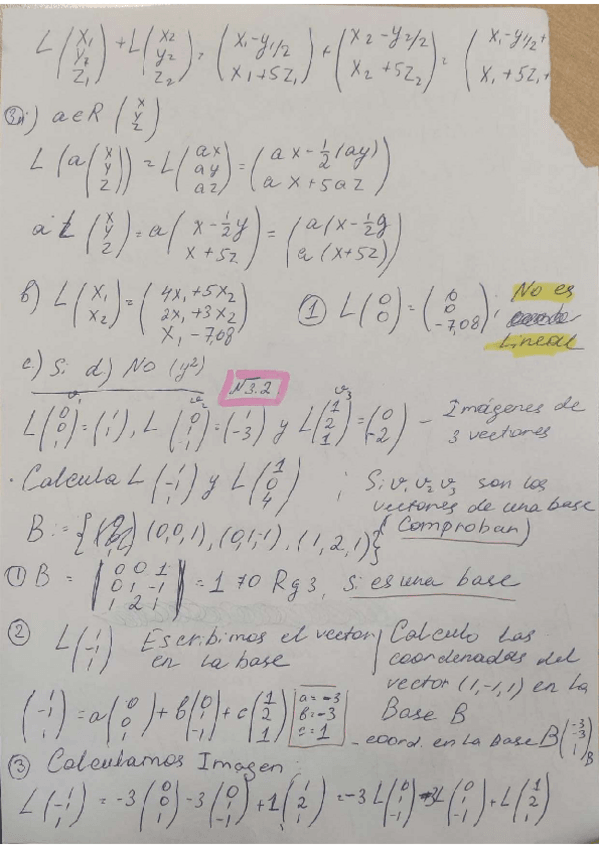 L(x₁ y₂ z₁) + L(x₂ y₂ z₂) = (x₁-y₁/2 x₁+5z₁) + (x₂-y₂/2 x₂+5z₂) = (x₁-y₁/2+ x₁+5z₁+
a∈R (x y z)
L(a(x y z)) = L(ax ay az) = (ax-½(ay) ax+5az)
a·L(x y z) = a(x-½y x+5z) = (a(x-½y a(x+5z))
b) L(x₁ x₂) = (4x₁+5x₂ 2x₁+3x₂ x₁-7,08) ① L(0 0) = (0 0 -7,08); No es
Lineal
c) Si d) No (y²) №3.2
v₁ v₂ v₃
L(0 0 1) = (1 1), L(0 1 -1) = (1 -3) y L(1 2 1) = (0 -2) – Imágenes de 3 vectores
· Calcula L(1 -1 1) y L(1 0 4) ; Si v₁ v₂ v₃ son los
vectores de una base
B := { (0,0,1), (0,1,-1), (1,2,1)} (Comproban)
① B = |0 0 1 0 1 -1 1 2 1| = 1 ≠0 Rg3, Si es una base
② L(1 -1 1) Escribimos el vector en la base
Calculo las coordenadas del vector (1,-1,1) en la Base B
(1 -1 1) = a(0 0 1) + b(0 1 -1) + c(1 2 1) a=-3 b=-3 c=1
– coord. en la Base B(-3 -3 1)B
③ Calculamos Imagen:
L(1 -1 1) = -3(0 0 1) -3(0 1 -1) + 1(1 2 1) = -3L(0 1 -1) -3L(0 1 -1) + L(1 2 1)